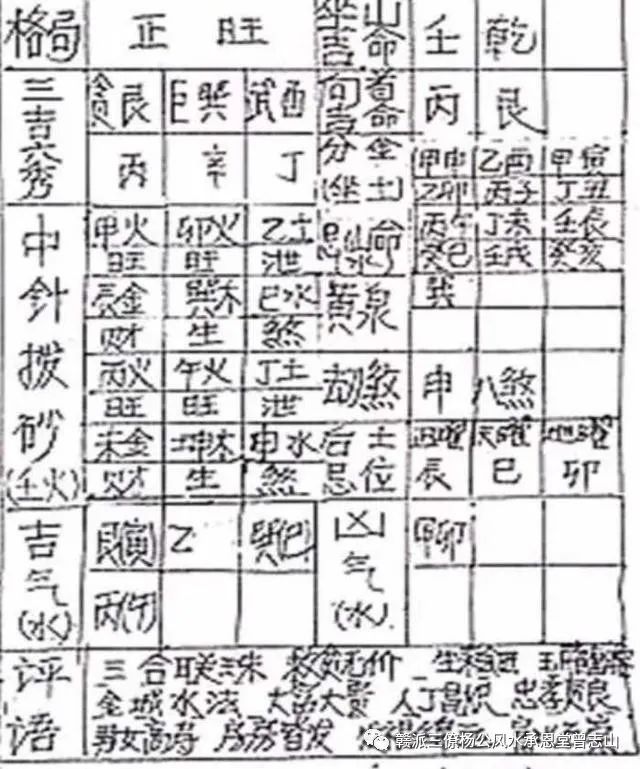 格局 正旺 坐山 壬 乾
吉命
三吉六秀 贪艮 巨巽 武酉 向首 丙 艮
吉命
丙 辛 丁 分金 甲申 乙酉 甲寅
(坐土) 乙卯 丙子 丁丑
中针拨砂 甲火 卯火 乙土 忌山命 丙午 丁未 壬辰
旺 旺 泄 (水) 癸巳 壬戌 癸亥
辰金 巽木 巳水 黄泉
财 生 煞
丙火 午火 丁土 劫煞 申 八煞
旺 旺 泄
(壬火) 未金 坤木 申水 后土 正曜 天曜 地曜
财 生 煞 忌位 辰 巳 卯
吉气 艮(寅) 乙 巽(巳) 凶气 甲(卯)
(水) 丙(午) (水)
评语 三合联珠 无价
金城水法 人丁昌 忠孝
男女高寿 房房皆发
赣派三僚杨公风水承恩堂曾志山